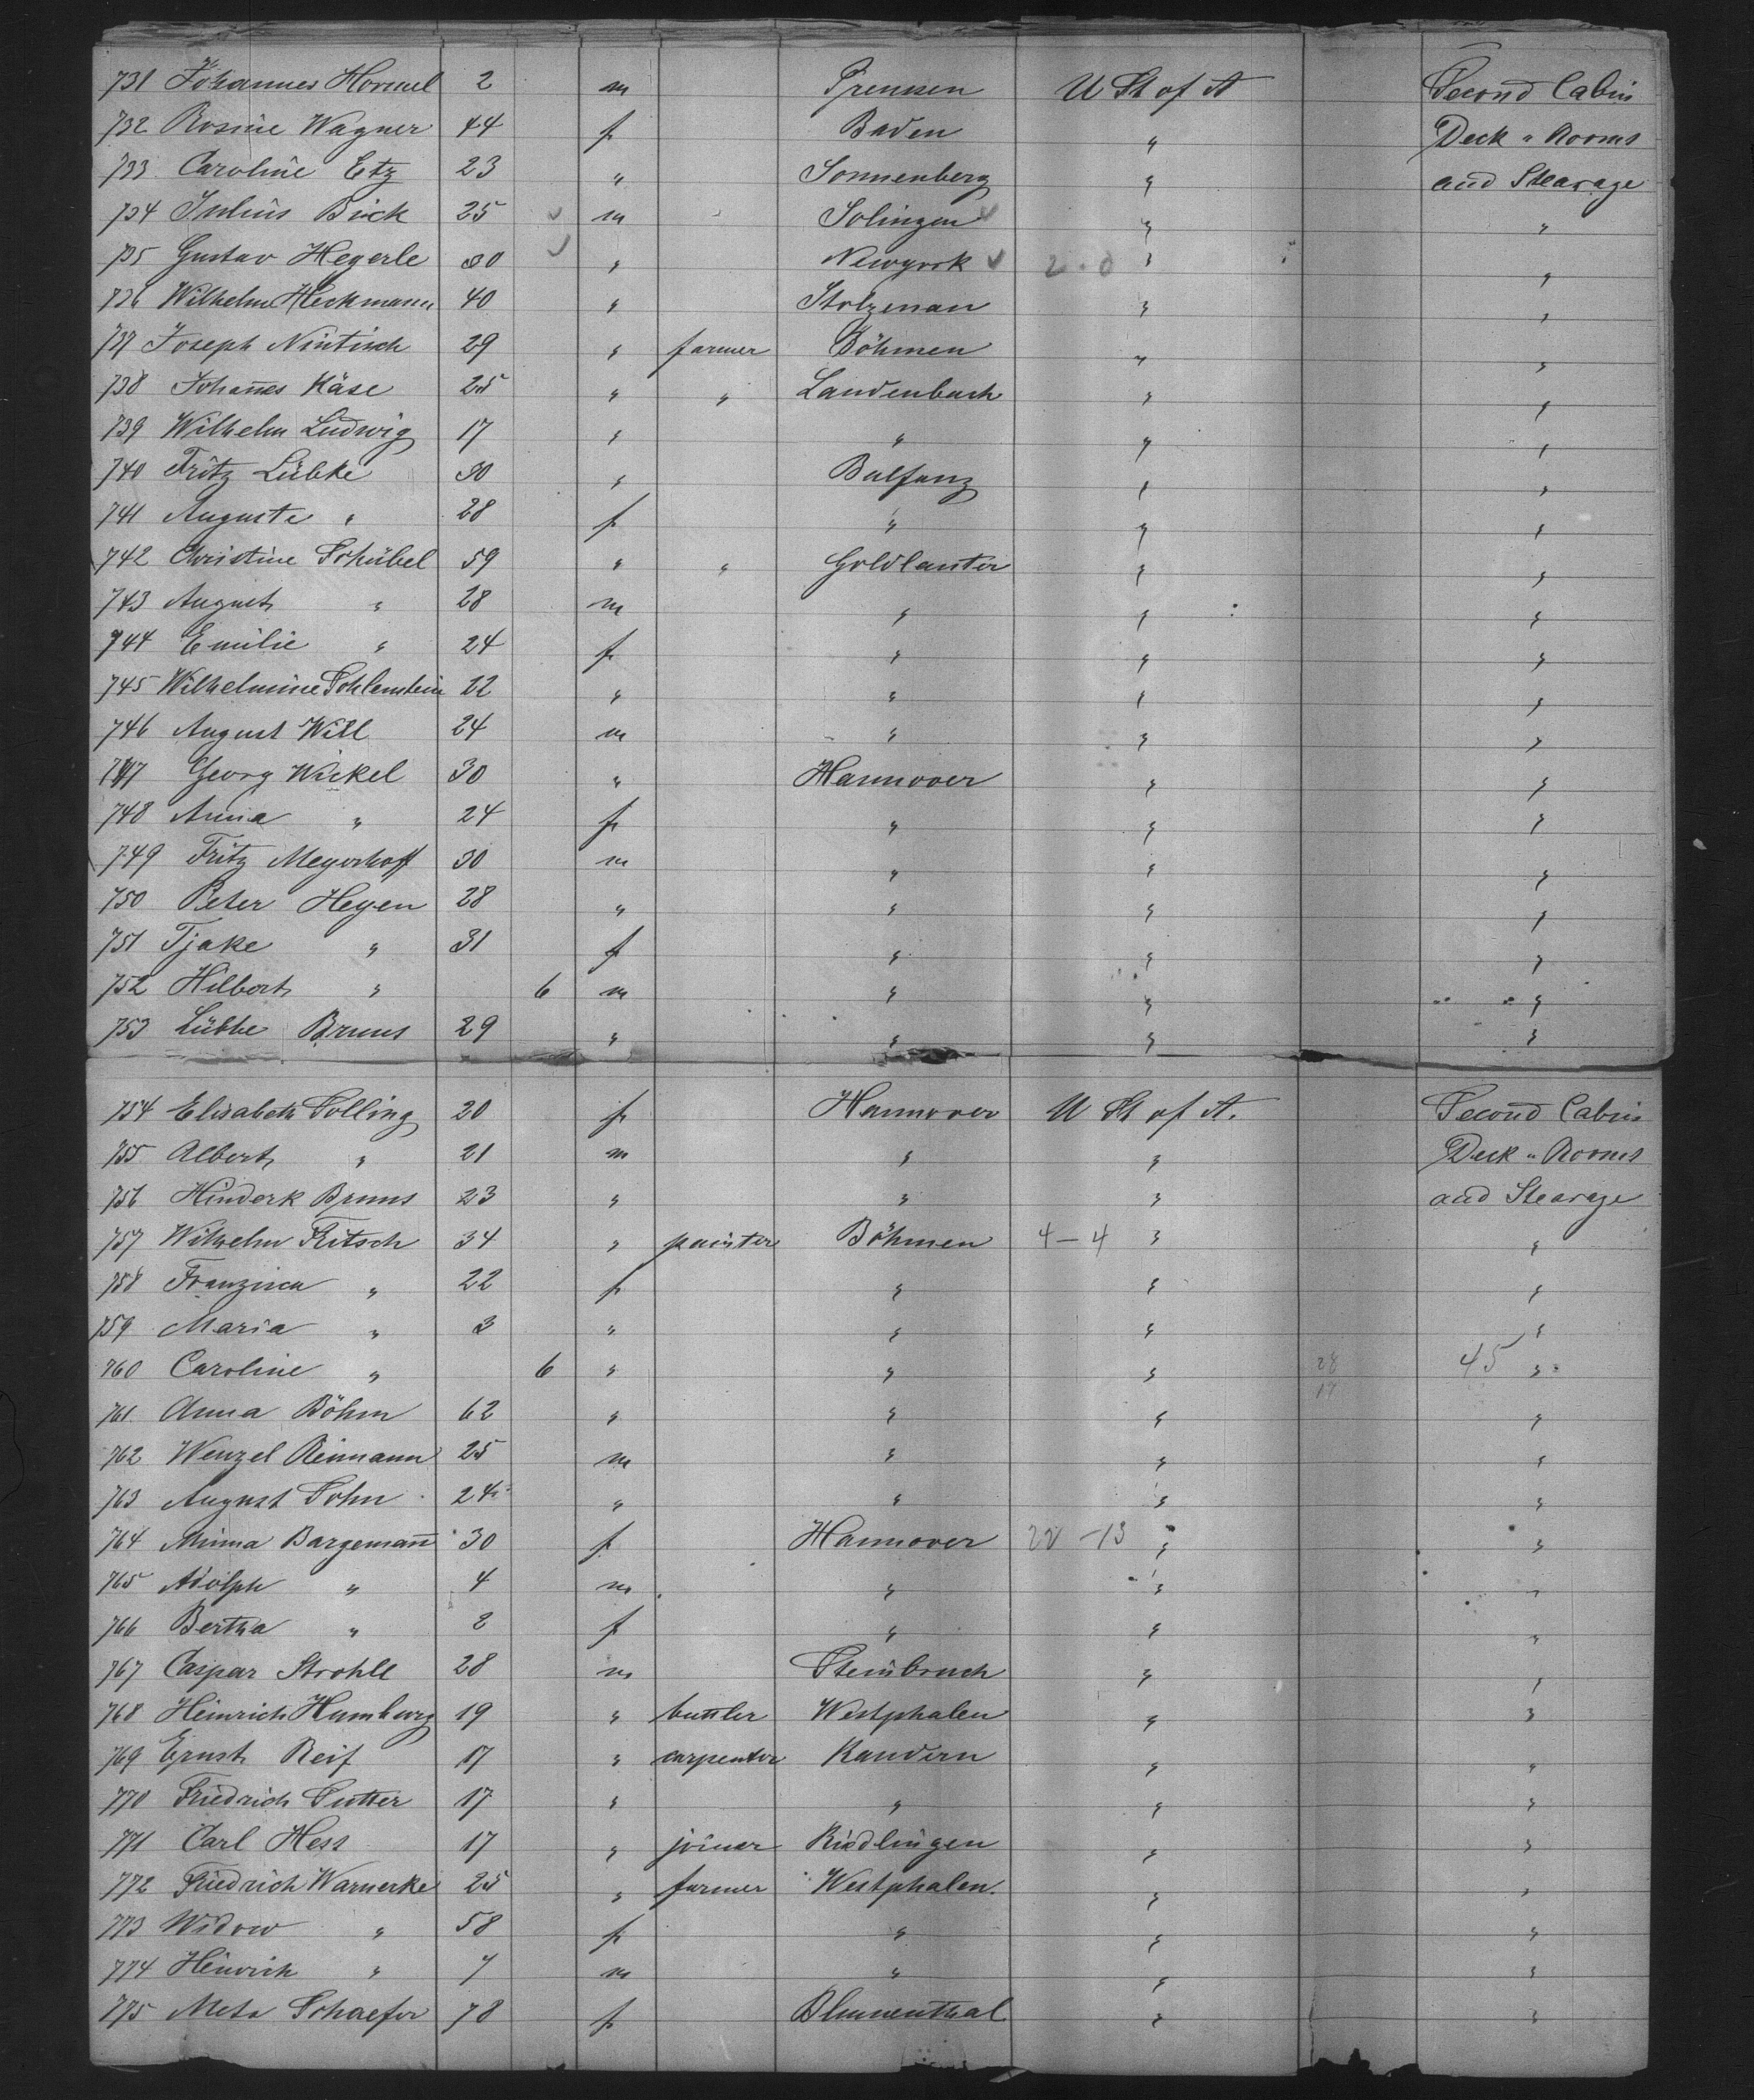 731 Johannes Hormel 2 m Preussen U St of A Second Cabin
732 Rosine Wagner 44 f Baden " Deck " Rooms
733 Caroline Etz 23 " Sonnenberg " and Stearage
734 Julius Bick 25 m Solingen " "
735 Gustav Hegerle 30 " Newyork 2 - 0 " "
736 Wilhelm Heckmann 40 " Stolzenau " "
737 Joseph Nintisch 29 " farmer Böhmen " "
738 Johanes Käse 25 " " Landenbach " "
739 Wilhelm Ludwig 17 " " " "
740 Fritz Lübke 30 " Balfanz " "
741 Auguste " 28 f " " "
742 Christine Schübel 59 " " Goldlauter " "
743 August " 28 m " " "
744 Emilie " 24 f " " "
745 Wilhelmine Schlenstein 22 " " " "
746 August Will 24 m " " "
747 Georg Wickel 30 " Hannover " "
748 Anna " 24 f " " "
749 Fritz Meyerhoff 30 m " " "
750 Peter Heyen 28 " " " "
751 Tjake " 31 f " " "
752 Hilbert " 6 m " " "
753 Lübbe Bruns 29 " " " "
754 Elisabeth Solling 20 f Hannover U St of A. Second Cabin
755 Albert " 21 m " " Deck " Rooms
756 Hinderk Bruns 23 " " " and Stearage
757 Wilhelm Fritsch 34 " painter Böhmen 4 - 4 " "
758 Franzisca " 22 f " " "
759 Maria " 3 " " " "
760 Caroline " 6 " " " 28 45 "
17
761 Anna Böhm 62 " " " "
762 Wenzel Reimann 25 m " " "
763 August Sohn 24 " " " "
764 Minna Bargemann 30 f Hannover 22 - 13 " "
765 Adolph " 4 m " " "
766 Bertha " 2 f " " "
767 Caspar Strohle 28 m Steinbruch " "
768 Heinrich Humburg 19 " buttler Westphalen " "
769 Ernst Reif 17 " carpenter Kandern " "
770 Friedrich Sutter 17 " " " "
771 Carl Hess 17 " joiner Riedlingen " "
772 Friedrich Warnerke 25 " farmer Westphalen. " "
773 Widow " 58 f " " "
774 Heinrich " 7 m " " "
775 Meta Schaefer 78 f Blumenthal " "